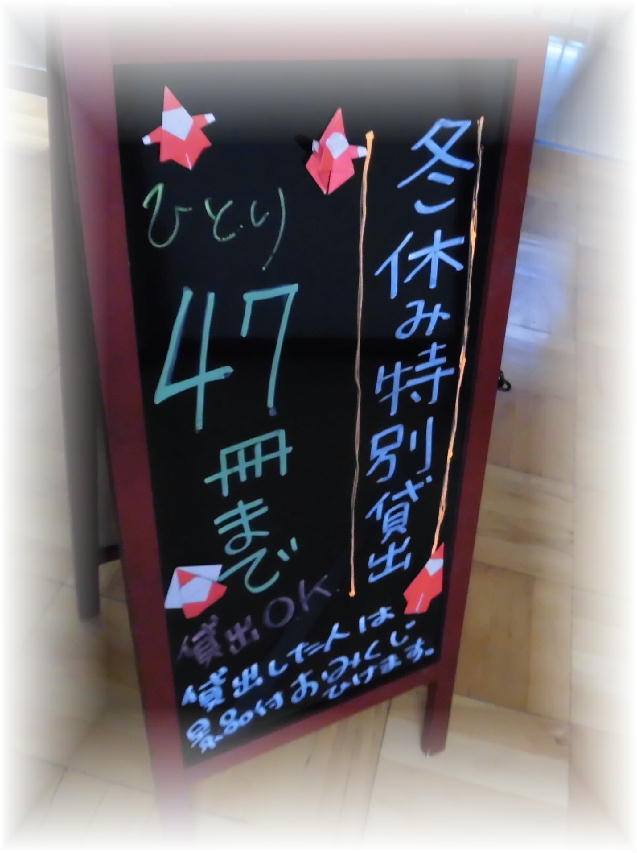 冬休み特別貸出
ひとり
47
冊まで
貸出OK.
貸出した人は
景品付おみくじ
ひけます。